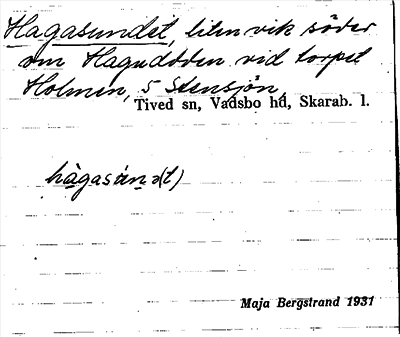 Hagasundet, liten vik söder
om Hagudden vid torpet
Holmen, S Stensjön,
Tived sn, Vadsbo hd, Skarab. l.
Maja Bergstrand 1931